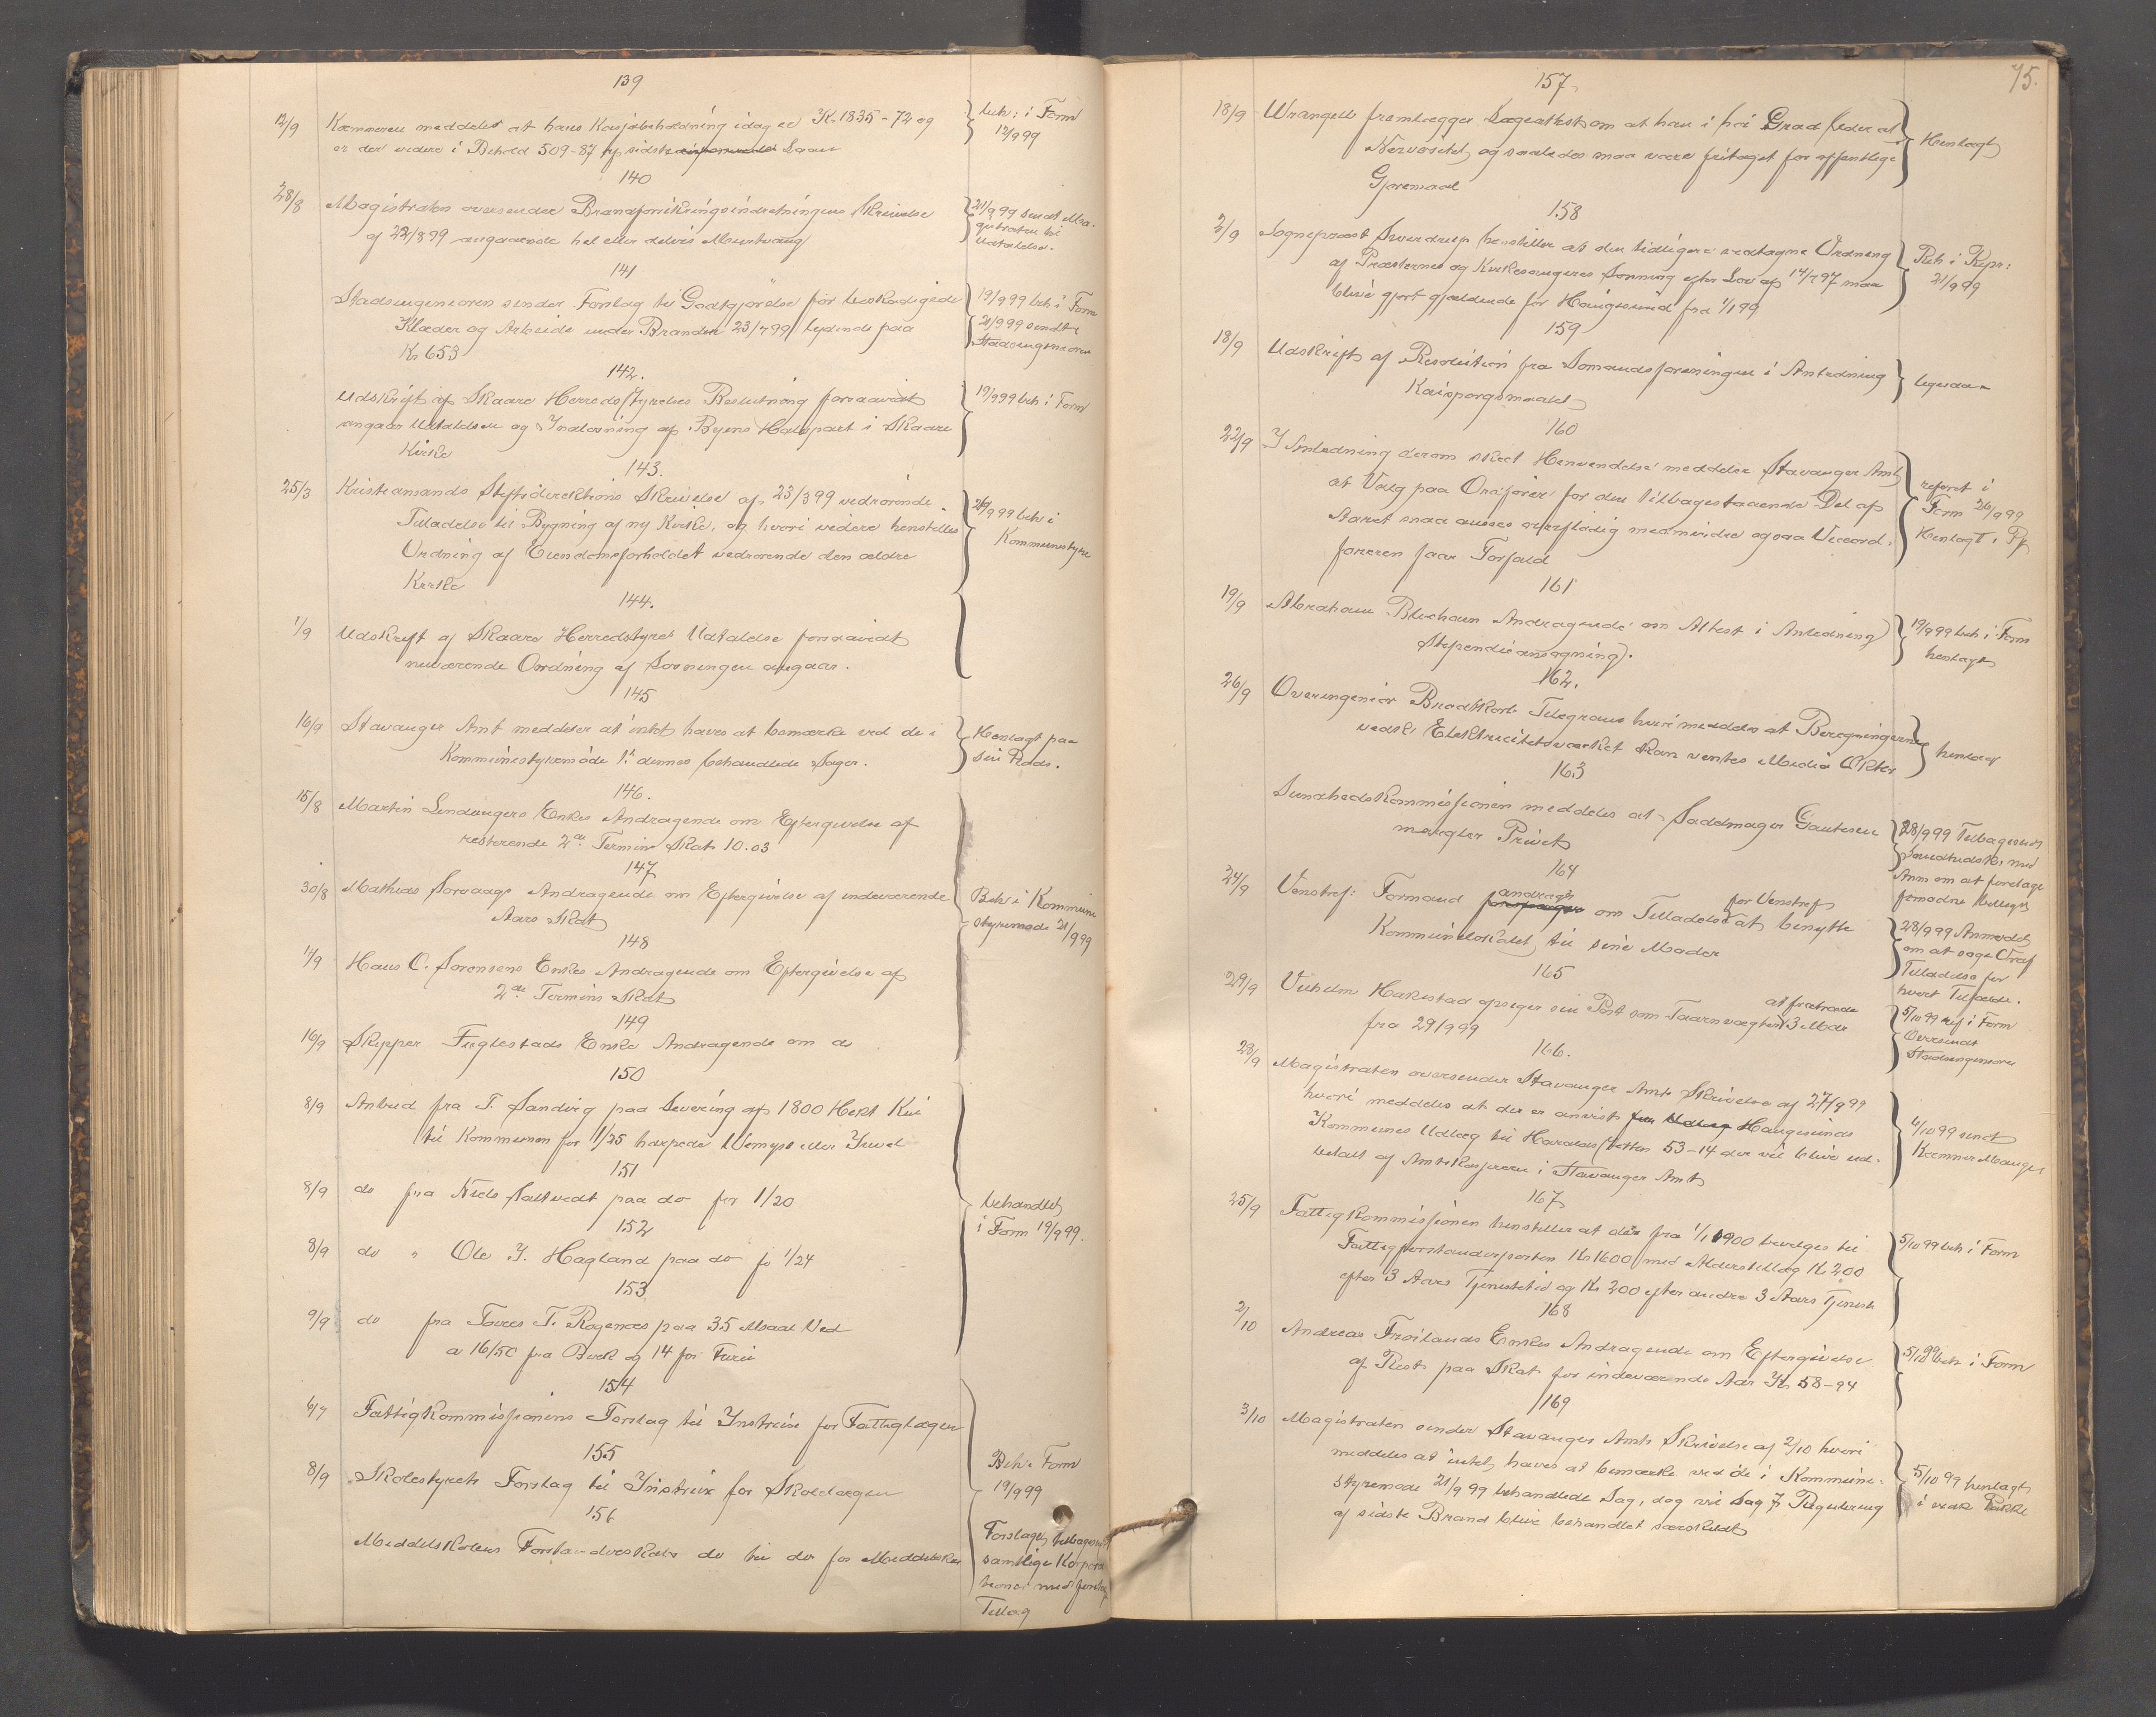 139
12/9 Kæmneren meddeler at hans Kassebeholdning idag er Kr. 1835-72 og
er der videre i Behold 509-87 af sidste Laan
beh: i Form
12/9 99
140
28/8 Magistraten oversender Brandforsikringsindretningens Skrivelse
af 22/8 99 angaaende hel eller delvis Murtvang
21/9 99 sendt Ma-
gistraten til
Udtalelse.
141
Stadsingeniøren sender Forslag til Godtgjørelse for beskadigede
Klæder og Arbeide under Branden 23/7 99 lydende paa
Kr 653
19/9 99 beh i Form
21/9 99 sendt
Stadsingeniøren
142.
Udskrift af Skaare Herredsstyrelses Beslutning forsaavidt
angaar Udtaldsen og Indløsning af Byens Halvpart i Skaare
Kirke
19/9 99 beh i Form
143.
25/3 Kristiansands Stiftsdirektions Skrivelse af 23/3 99 vedrørende
Tilladelse til Bygning af ny Kirke, og hvori videre henstilles
Ordning af Eiendomsforholdet vedrørende den ældre
Kirke
21/9 99 beh i
Kommunestyre
144.
1/9 Udskrift af Skaare Herredstyres Udtalelse forsaavidt
nuværende Ordning af Lønningen angaar.
145
16/9 Stavanger Amt meddeler at intet haves at bemærke ved de i
Kommunestyremøde 1: dennes behandlede Sager.
Henlagt paa
sin Plads.
146.
15/8 Martin Lendingers Enkes Andragende om Eftergivelse af
resterende 2de Termin Skat 10.03
147
30/8 Mathias Søraags Andragende om Eftergivelse af indeværende
Aars Skat
Beh i Kommune
styremøde 21/9 99
148
11/9 Hans C. Sørensens Enkes Andragende om Eftergivelse af
2de Termins Skat
149
16/9 Skipper Fuglestads Enke Andragende om do
150
8/9 Anbud fra T. Sandvig paa Levering af 1800 Hekt Kul
til Kommunen for 1/25 harpede Wemyss eller Juvel
151
8/9 do fra Niels Saltvedt paa do for 1/20
behandlet
i Form 19/9 99.
152
8/9 do " Ole I. Hagland paa do for 1/24
153
9/9 do fra Tøres T. Røgenæs paa 35 Maal Ved
a 16/50 fra Birk og 14 for Furu
154
6/7 Fattigkommissionens Forslag til Instrux for Fattiglægen
155
8/9 Skolestyrets Forslag til Instrux for Skolelægen
Beh i Form
19/9 99
156
Middelskolens Forstanderskabs do til do for Middelskolen
Forslaget tilbagesendt
samtlige Korpora
tioner med forslag
Tillæg
75.
157
18/9 Wrangell fremlægger Lægeattest om at han i høi Grad lider af
Nervøsitet, og saaledes maa være fritaget for offentlige
Gjøremaal
Henlagt
158
2/9 Sogneprest Sverdrup henstiller at den tidligere vedtagne Ordning
af Præsternes og Kirkesangeres Lønning efter Lov af 14/7 97 maa
blive gjort gjældende for Haugesund fra 1/1 99
Beh i Repr:
21/9 99
159
18/9 Udskrift af Resolution fra Sømandsforeningen i Anledning
Kaispørgsmaalet
ligesaa
160
22/9 I Anledning derom skeet Henvendelse meddeler Stavanger Amt
at Valg paa Ordfører for den tilbagestaaende Del af
Aaret maa ansees overflødig medmindre ogsaa Viceord-
føreren faar Forfald
referet i
Form 26/9 99
Henlagt
161
19/9 Abraham Blixhavn Andragende om Attest i Anledning
Stipendieansøgning.
19/9 99 beh i Form
henlagt
162.
26/9 Overingeniør Bradtkorb Telegram hvori meddeles at Beregningerne
vedk. Elektricitetsværket kan ventes Medio Oktbr
henlagt
163
Sundhedskommissionen meddeles at Sadelmager Gautesen
mangler Privet
28/9 99 Tilbagesendt
Sundhedsk. med
Anm om at foretage
fornødne Indlæg
164
24/9 Venstref: Formand andrager om Tilladelse for Venstref at benytte
Kommunelokalet til sine Møder
28/9 99 Anmodet
om at søge
Tilladelse for
hvert Tilfælde.
165
29/9 Vilhelm Hakestad opsiger sin Post som Taarnvægter at fratræde 3 Mdr
fra 29/9 99
5/10 99 ref i Form
Oversendt
Stadsingeniøren
166.
28/9 Magistraten oversender Stavanger Amts Skrivelse af 27/9 99
hvori meddeles at der er anvist for Udlæg Haugesunds
Kommunes Udlæg til Haralds 53-14 der vil blive ud-
betalt af Amtskassereren i Stavanger Amt
6/10 99 sendt
Kæmner Manger
167
25/9 Fattigkommissionen henstiller at der fra 1/1 1900 bevilges til
Fattigforstanderposten Kr 1600 med Alderstillæg Kr 200
efter 3 Aars Tjenestetid og Kr 200 efter andre 3 Aars Tjeneste
5/10 99 beh i Form
168
2/10 Andreas Frøilands Enkes Andragende om Eftergivelse
af Rest paa Skat for indeværende Aar Kr 58-94
5/10 99 beh i Form
169
3/10 Magistraten sender Stavanger Amts Skrivelse af 2/10 hvori
meddeles at intet haves at bemærke ved de i Kommune-
styremøde 21/9 99 behandlede Sag, dog vil Sag 7 Regulering
af sidste Brand blive behandlet særskildt
5/10 99 henlagt
i vedk Pakke